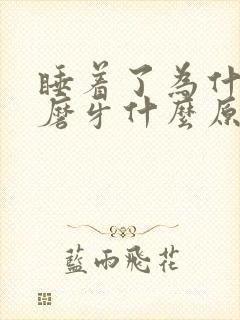 睡着了為什
磨牙什麼原
藍雨飛花